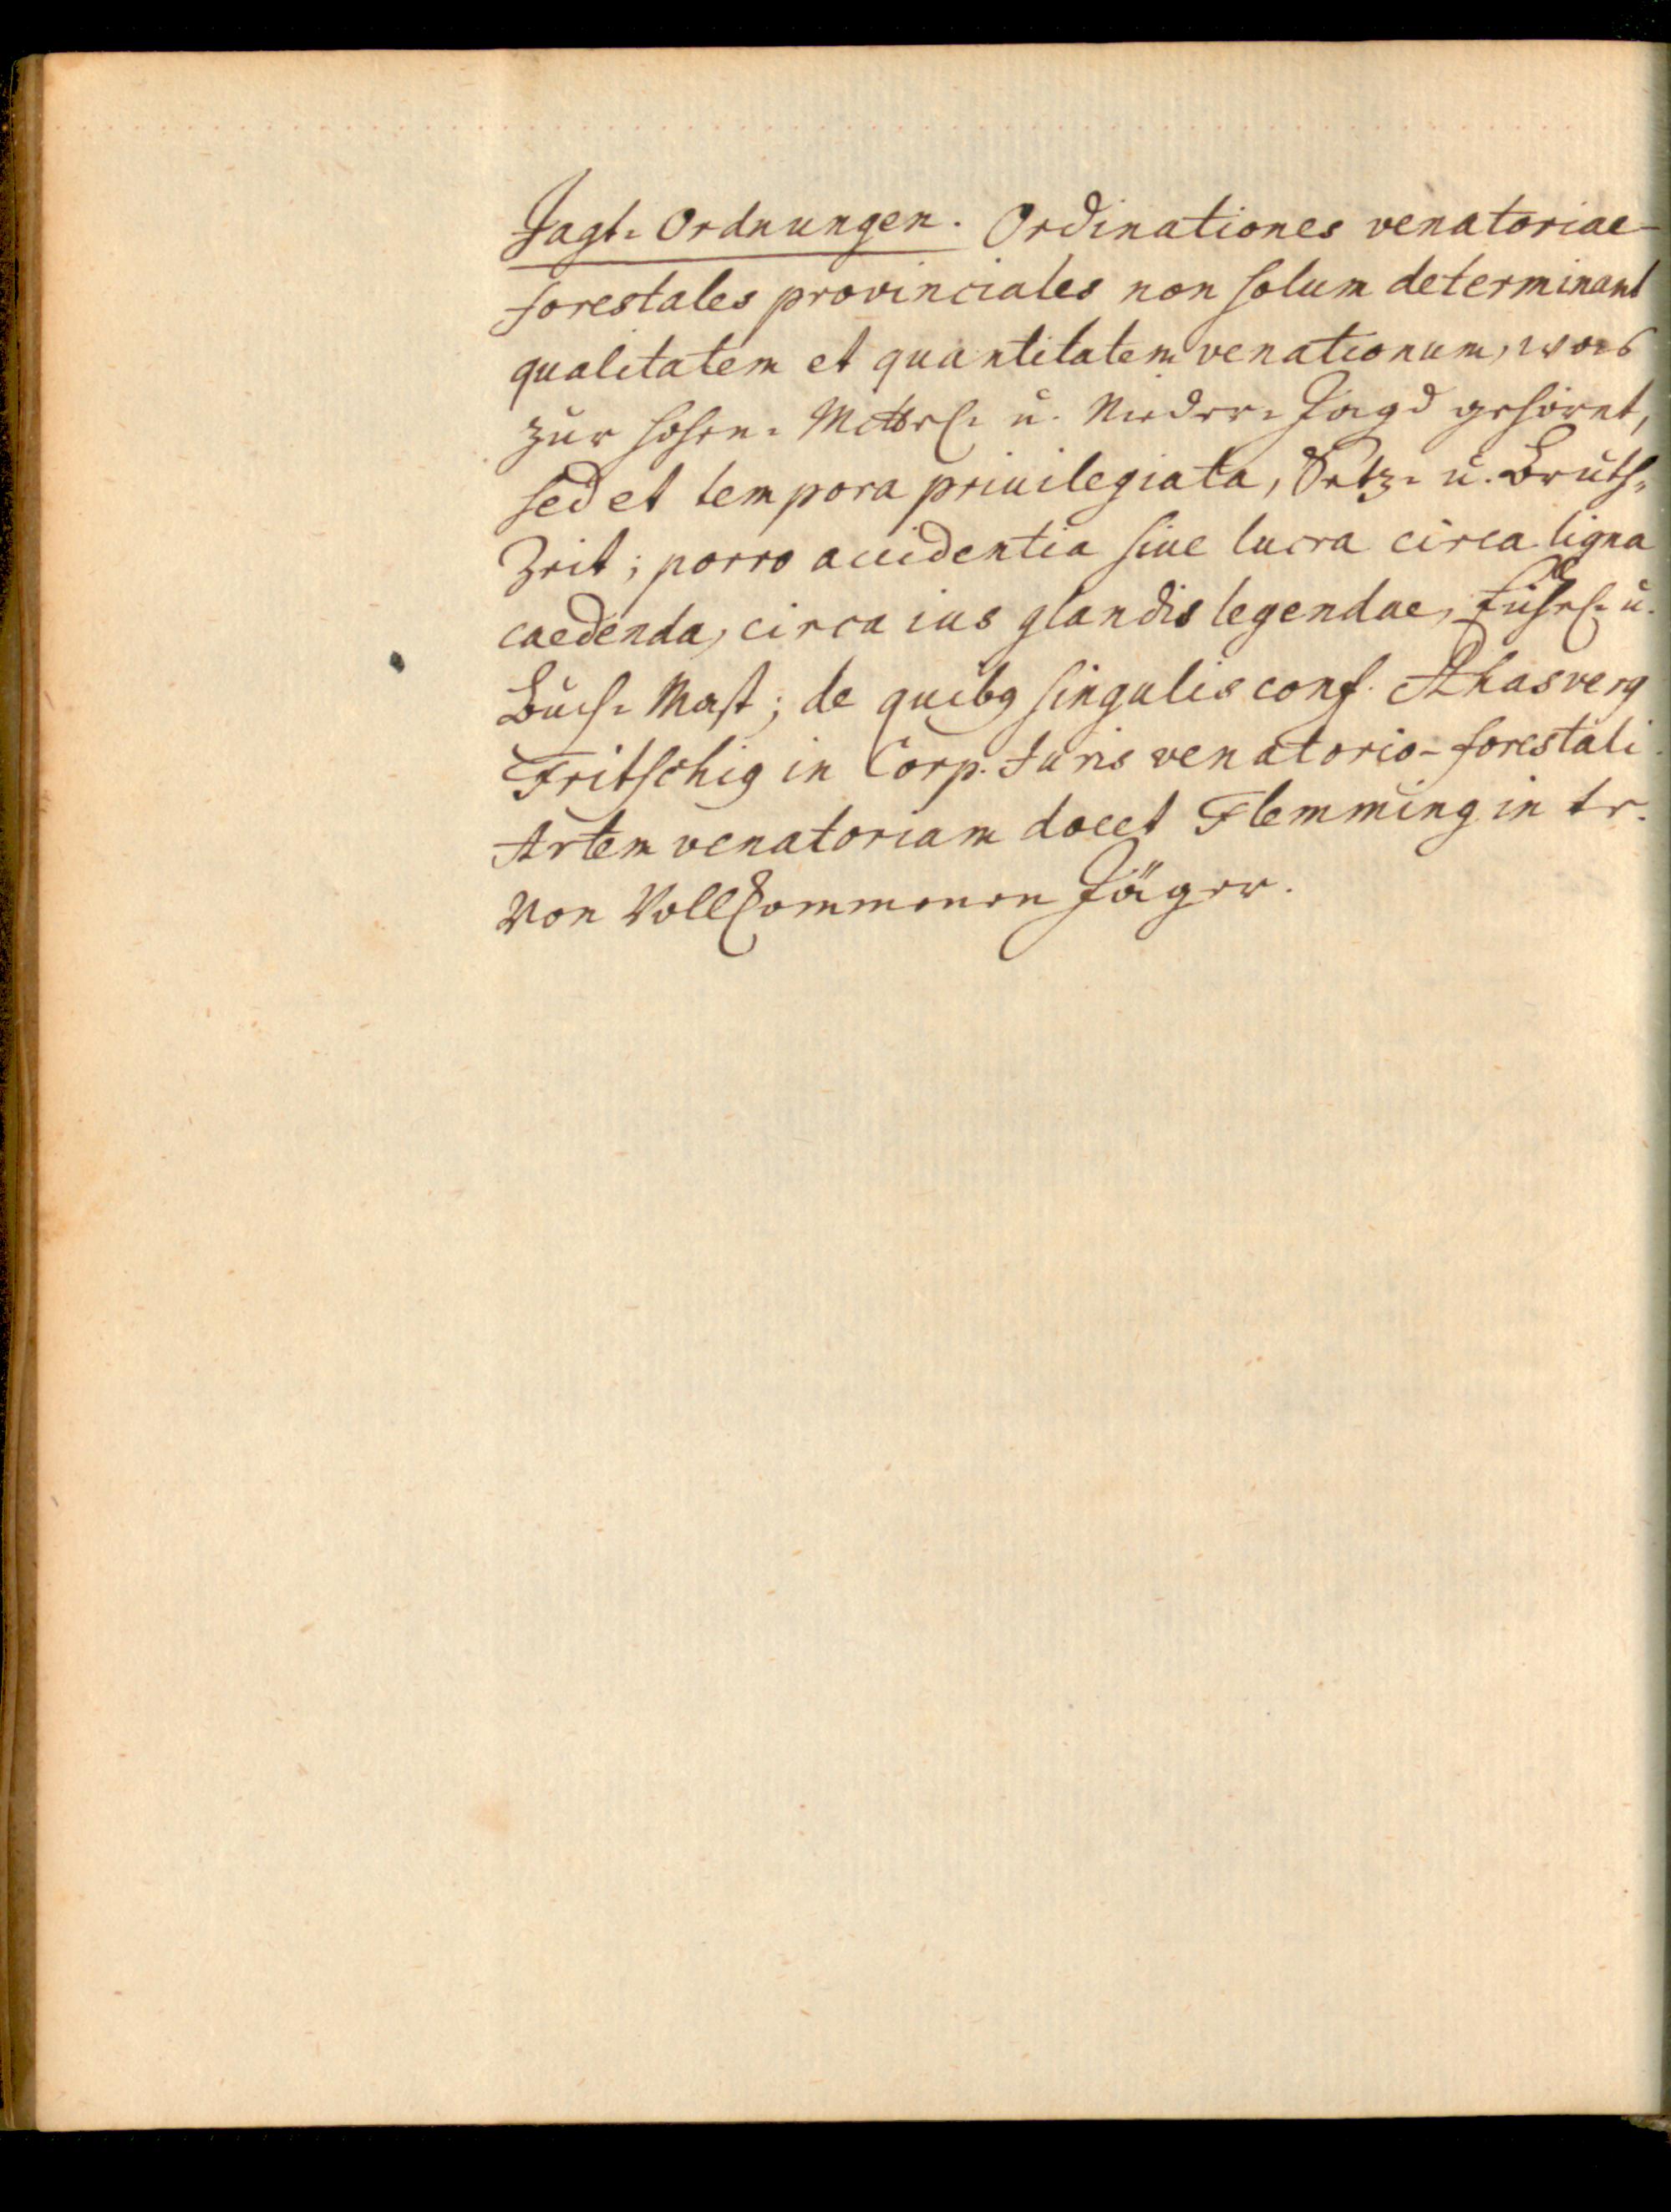 Jagt-Ordnungen. Ordinationes venatoriae-
forestales provinciales non solum determinant
qualitatem et quantitatem venationum, was
zur hohen- Mittel- u. Nieder-Jagd gehöret,
sed et tempora priuilegiata, Setz- u. Bruth-
Zeit; porro accidentia siue lucra circa ligna
caedenda, circa ius glandis legendae, u.
Buch-Mast; de quibq singulis conf. Ahasverq
Fritschiq in Corp. Juris venatorio-forestali.
Artem venatoriam docet Flemming in tr.
Von Vollkommenen Jäger.